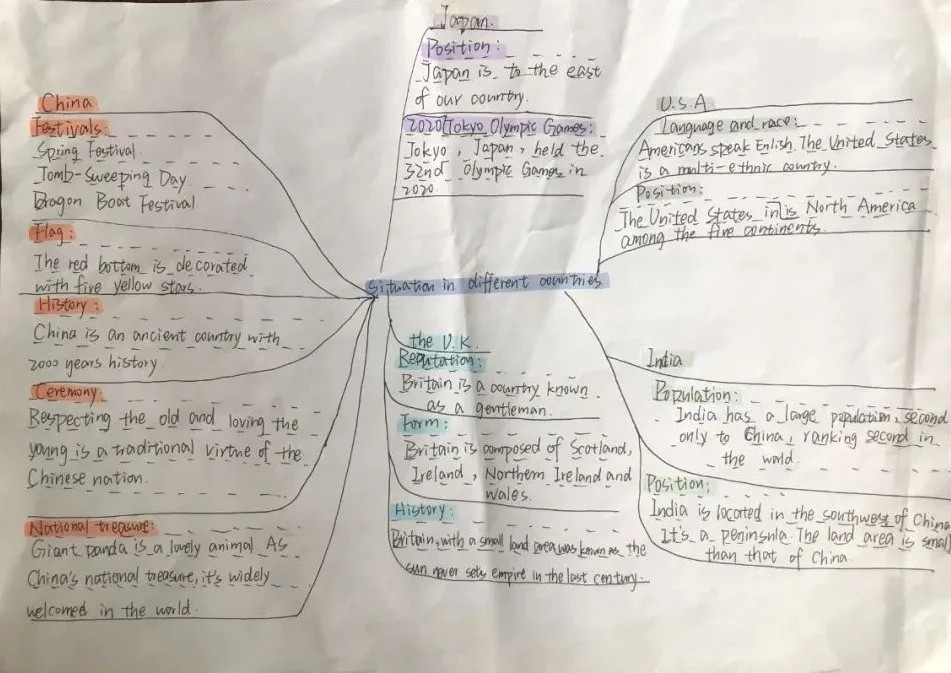 Japan.
Position:
Japan is to the east
of our country.
2020 Tokyo Olympic Games:
Tokyo, Japan, held the
32nd Olympic Games in
2020.
China
Festivals:
Spring Festival.
Tomb-Sweeping Day.
Dragon Boat Festival.
Flag:
The red bottom is decorated
with five yellow stars.
History:
China is an ancient country with
2000 years history.
Ceremony:
Respecting the old and loving the
young is a traditional virtue of the
Chinese nation.
National treasure:
Giant panda is a lovely animal. As
China's national treasure, it's widely
welcomed in the world.
Situation in different countries
U.S.A
Language and race:
Americans speak Enlish. The United States
is a multi-ethnic country.
Position:
The United States in is North America
among the five continents.
the U.K.
Reputation:
Britain is a country known
as a gentleman.
Form:
Britain is composed of Scotland,
Ireland, Northern Ireland and
Wales.
History:
Britain, with a small land area was known as the
sun never sets empire in the last century.
India
Population:
India has a large population, second
only to China, ranking second in
the world.
Position:
India is located in the southwest of China
It's a peninsula. The land area is small
than that of China.